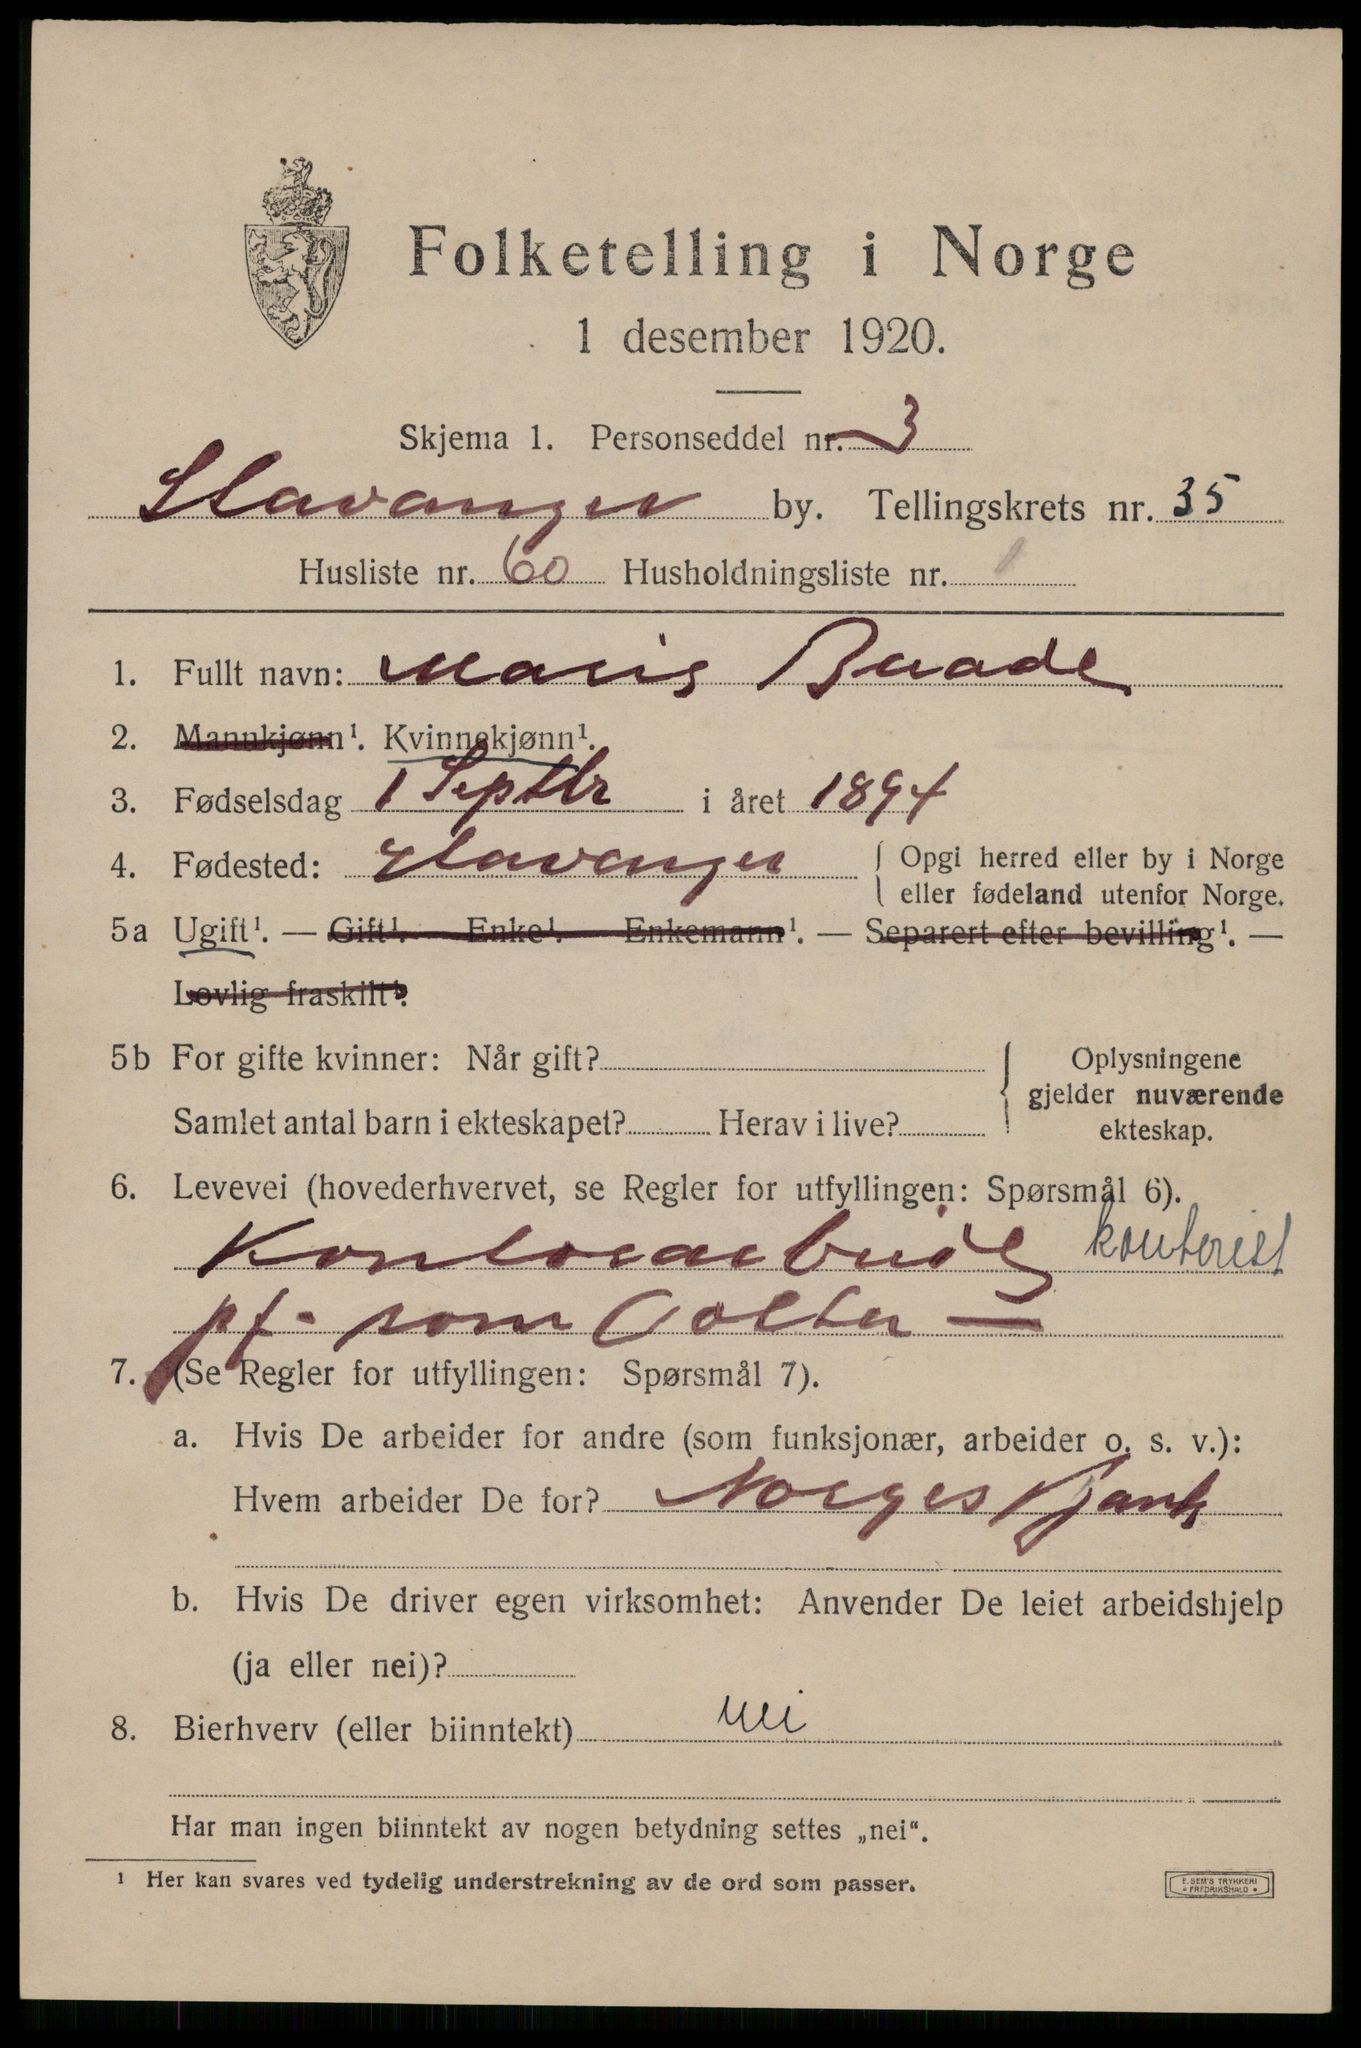 Folketelling i Norge
1 desember 1920.
Skjema 1. Personseddel nr. 3
Stavanger by. Tellingskrets nr. 35
Husliste nr. 60 Husholdningsliste nr. 1
1. Fullt navn: Marie Baade
2. Mannkjønn¹. Kvinnekjønn¹.
3. Fødselsdag 1 Septbr i året 1894
4. Fødested: Stavanger { Opgi herred eller by i Norge
eller fødeland utenfor Norge.
5a Ugift¹. — Gift¹. Enke¹. Enkemann¹. — Separert efter bevilling¹. —
Lovlig fraskilt¹.
5b For gifte kvinner: Når gift?
Samlet antal barn i ekteskapet? Herav i live?
Oplysningene
gjelder nuværende
ekteskap.
6. Levevei (hovederhvervet, se Regler for utfyllingen: Spørsmål 6).
Kontorarbeide kontorist
pt. som
7. (Se Regler for utfyllingen: Spørsmål 7).
a. Hvis De arbeider for andre (som funksjonær, arbeider o. s. v.):
Hvem arbeider De for? Norges Bank
b. Hvis De driver egen virksomhet: Anvender De leiet arbeidshjelp
(ja eller nei)?
8. Bierhverv (eller biinntekt) nei
Har man ingen biinntekt av nogen betydning settes „nei“.
¹ Her kan svares ved tydelig understrekning av de ord som passer.
E. SEM'S TRYKKERI
• FREDRIKSHALD •